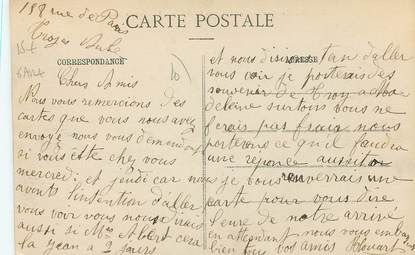 188 rue de Paris
CARTE POSTALE
Troyes Aube
CORRESPONDANCE
ADRESSE
Chers Amis
Nous vous remercions des
cartes que vous nous avez
envoye nous vous demandons
si vous ette chez vous
mercredi et jeudi car nous
avents l'intention d'aller
vous voir vous nous dirais
aussi si Mr Albert cera
la Jean a 2 jours
et nous disirons tan d'aller
vous voir je porterais des
souvenir de
de laine surtous vous ne
ferais pas frais nous
porterons ce qu'il faudra
une reponce aussitor
je vous renverrais une
carte pour vous dire
l'eure de notre arrivé
en attendant nous vous embras
bien tous vos amis